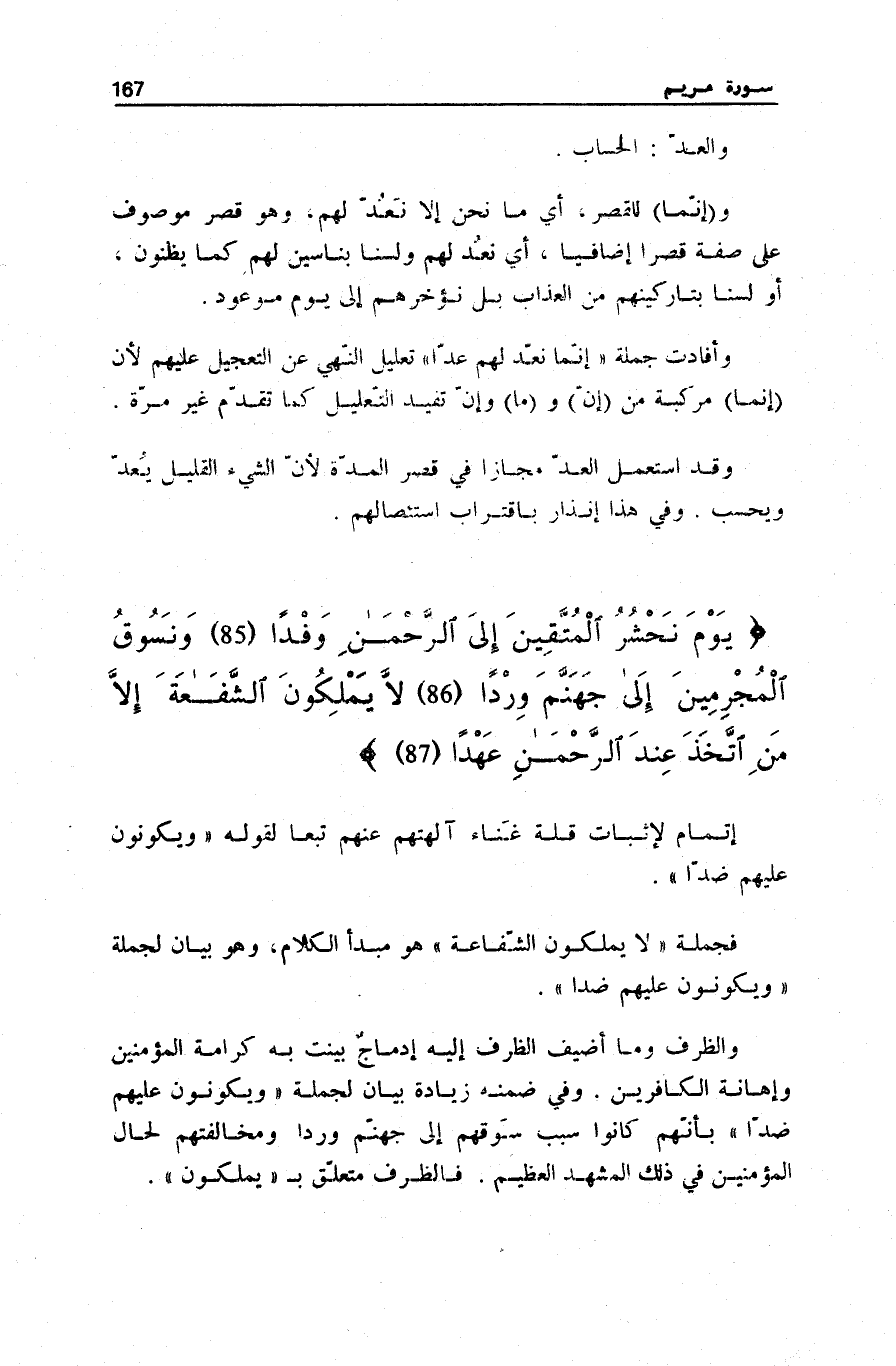 سورة مريم 167
والعدّ : الحساب .
و(إنّما) للقصر ، أي ما نحن إلا نَعُدّ لهم، وهو قصر موصوف
على صفة قصرا إضافيا ، أي نعُد لهم ولسنا بناسين لهم كما يظنون ،
أو لسنا بتاركينهم من العذاب بل نؤخرهم إلى يوم موعود .
وأفادت جملة « إنّما نعدّ لهم عدّا» تعليل النّهي عن التعجيل عليهم لأن
(إنما) مركبة من (إنّ) و (ما) وإنّ تفيد التّعليل كما تقدّم غير مرّة .
وقد استعمل العدّ مجازا في قصر المدّة لأنّ الشيء القليل يُعدّ
ويحسب . وفي هذا إنذار باقتراب استئصالهم .
﴿ يَوْمَ نَحْشُرُ ٱلْمُتَّقِينَ إِلَى ٱلرَّحْمَـٰنِ وَفْدًا (85) وَنَسُوقُ
ٱلْمُجْرِمِينَ إِلَىٰ جَهَنَّمَ وِرْدًا (86) لاَّ يَمْلِكُونَ ٱلشَّفَـٰعَةَ إِلاَّ
مَنِ ٱتَّخَذَ عِندَ ٱلرَّحْمَـٰنِ عَهْدًا (87) ﴾
إتمام لإثبات قلة غَناء آلهتهم عنهم تبعا لقوله « ويكونون
عليهم ضدّا » .
فجملة « لا يملكون الشّفاعة » هو مبدأ الكلام، وهو بيان لجملة
« ويكونون عليهم ضدا » .
والظرف وما أضيف الظرف إليه إدماجٌ بينت به كرامة المؤمنين
وإهانة الكافرين . وفي ضمنه زيادة بيان لجملة « ويكونون عليهم
ضدّا » بأنّهم كانوا سبب سَوقهم إلى جهنّم وردا ومخالفتهم لحال
المؤمنين في ذلك المشهد العظيم . فالظرف متعلّق بـ « يملكون » .